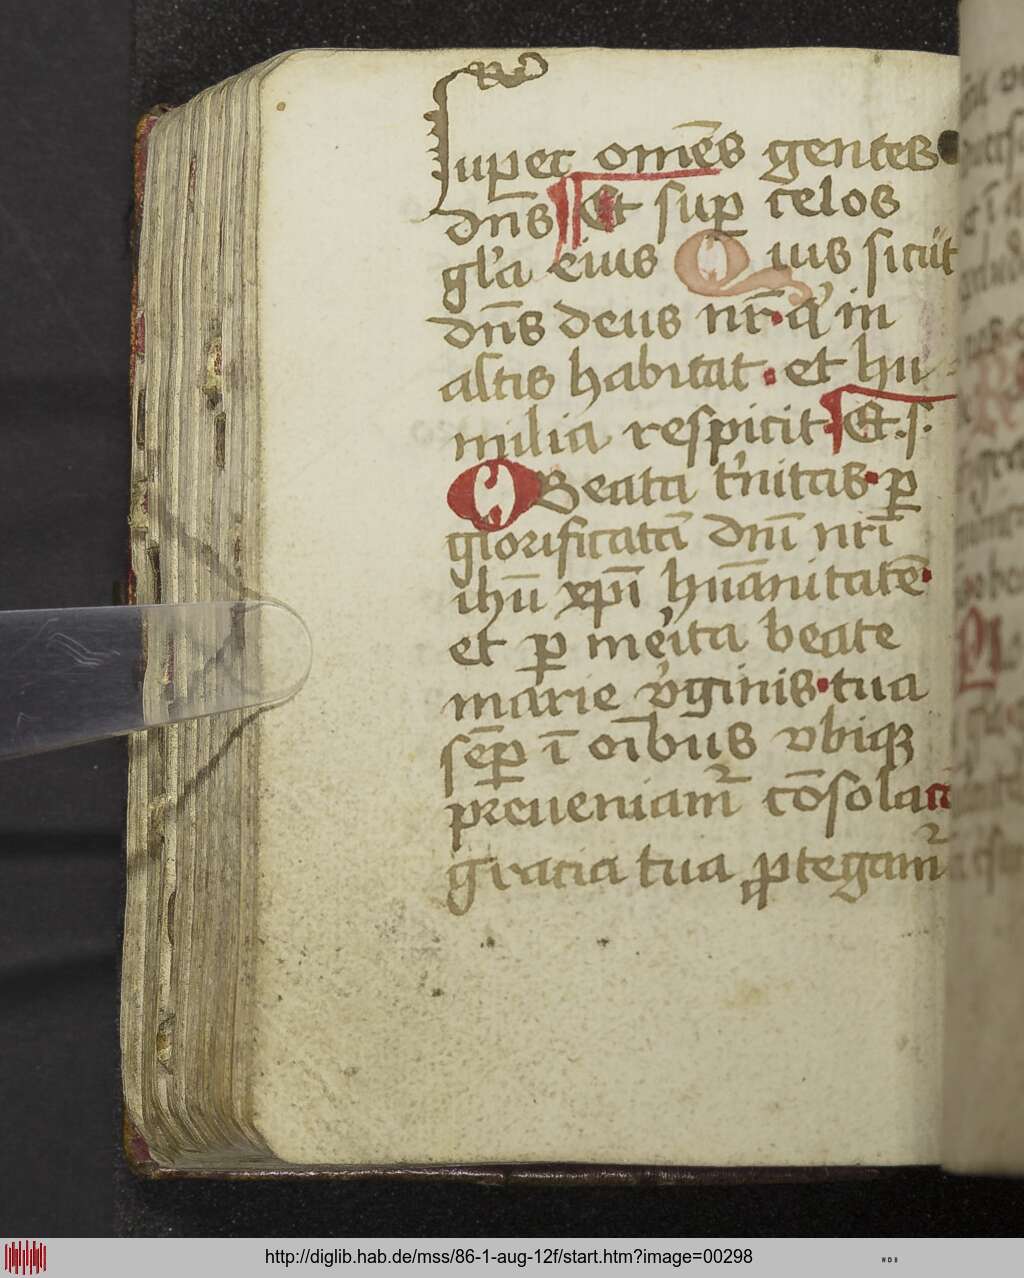 super om̄es gentes
dn̄s Et suꝑ celos
gl'a eius Quis sicut
dn̄s deus nr̄ q' in
altis habitat et hu
milia respicit Et .s.
O Beata t'nitas ꝑ
glorificatā dn̄i nr̄i
ihū xp̄i hūanitatē
et ꝑ me'ita beate
marie v'ginis tua
sēꝑ ī oībus vbiqꝫ
preueniam᷑ cōsolaci
gracia tua ꝓtegam᷑
http://diglib.hab.de/mss/86-1-aug-12f/start.htm?image=00298